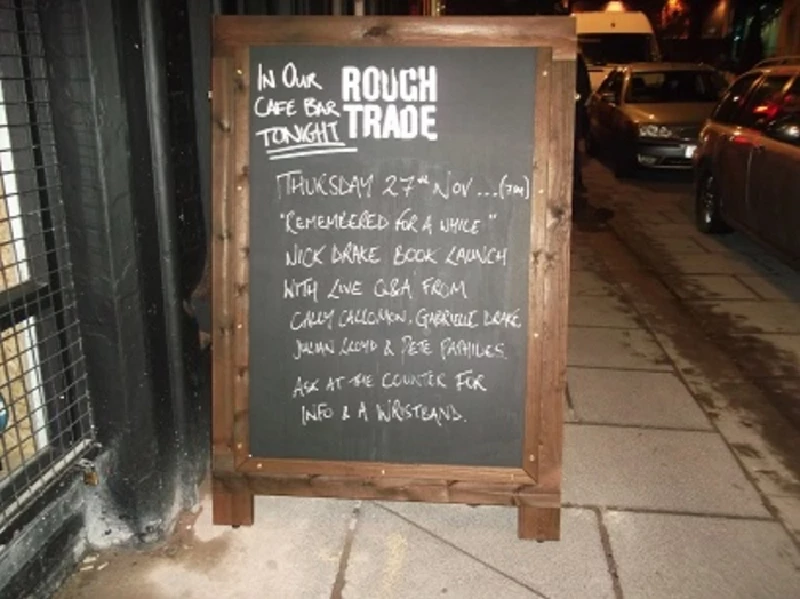 IN OUR
CAFE BAR
TONIGHT
ROUGH
TRADE
THURSDAY 27th NOV ... (7PM)
"REMEMBERED FOR A WHILE"
NICK DRAKE BOOK LAUNCH
WITH LIVE Q&A FROM
CALLY CALLOMON, GABRIELLE DRAKE
JULIAN LLOYD & PETE PAPHIDES.
ASK AT THE COUNTER FOR
INFO & A WRISTBAND.